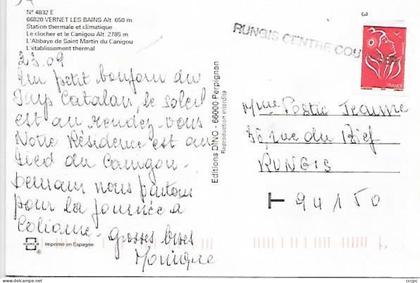 N° 4832 E
66820 VERNET LES BAINS Alt. 650 m
Station thermale et climatique
Le clocher et le Canigou Alt. 2785 m
L'Abbaye de Saint Martin du Canigou
L'établissement thermal
RUNGIS CENTRE COU
2.3.09
Un petit bonjour du
Pays Catalan, le soleil
est au rendez-vous
Notre Résidence est au
Pied du Canigou
Demain nous partons
pour la journée à
grosses bises
Monique
Editions DINO - 66000 Perpignan
Reproduction interdite
Mme Postic Jeanne
rue du Bief
RUNGIS
T 94150
Imprimé en Espagne